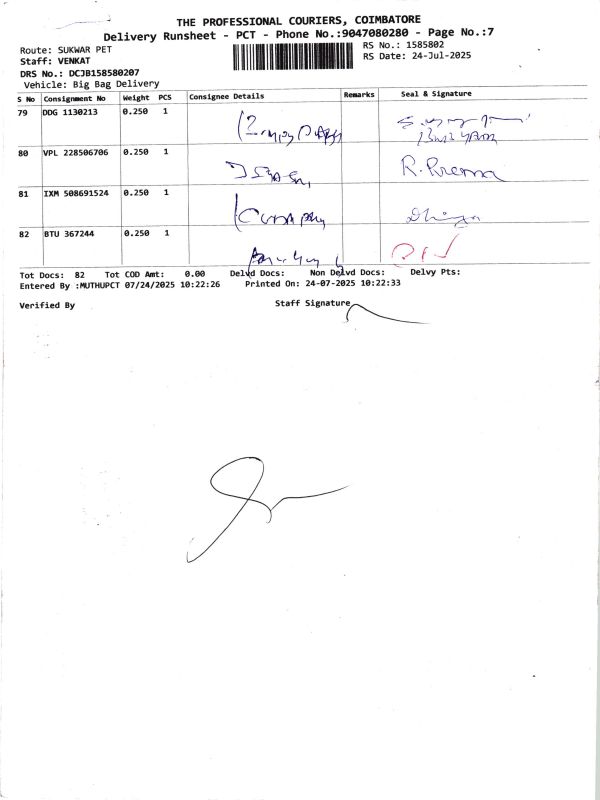 THE PROFESSIONAL COURIERS, COIMBATORE
Delivery Runsheet - PCT - Phone No.:9047080280 - Page No.:7
Route: SUKWAR PET
Staff: VENKAT
DRS No.: DCJB158580207
Vehicle: Big Bag Delivery
RS No.: 1585802
RS Date: 24-Jul-2025
S No Consignment No Weight PCS Consignee Details Remarks Seal & Signature
79 DDG 1130213 0.250 1
80 VPL 228506706 0.250 1 R. Prema
81 IXM 508691524 0.250 1
82 BTU 367244 0.250 1
Tot Docs: 82 Tot COD Amt: 0.00 Delvd Docs: Non Delvd Docs: Delvy Pts:
Entered By :MUTHUPCT 07/24/2025 10:22:26 Printed On: 24-07-2025 10:22:33
Verified By Staff Signature